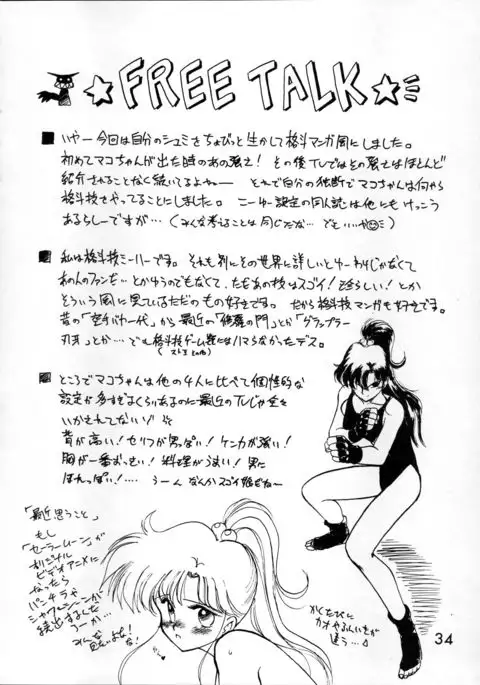 ☆FREE TALK☆
■いやー今回は自分のシュミをちょびっと生かして格斗マンガ風にしました。
初めてマコちゃんが出た時のあの強さ！その後TVではその強さはほとんど
紹介されることなく続いてるよねー それで自分の独断でマコちゃんは何から
格斗技をやってることにしました。こーゆー設定の同人誌は他にもけっこう
あるらしーですが…（みんな考えることは同じだな…
■私は格斗技ミーハーです。それも別にその世界に詳しいとゆーわけじゃなくて
とかゆうのでもなくて、ただあの技はスゴイ！とか
そういう風に見ているただのもの好きです。だから格斗技マンガも好きです。
昔の「空手バカ一代」から最近の「修羅の門」とか「グラップラー
刃牙」とか…でも格斗技ゲーム類にはハマらなかったデス。
■ところでマコちゃんは他の4人に比べて個性的な
設定が多すぎるくらいあるのに最近のTVじゃ全々
いかされてないゾ
背が高い！セリフが男っぽい！ケンカが強い！
胸が一番おっきい！料理がうまい！男に
ほれっぽい！… うーんなんかスゴイ
「最近思うこと」
もし
「セーラームーン」が
オリジナル
ビデオアニメに
なったら
パンチラや
シャワーシーンが
続出するんだ
ろーか…
みんな
かくたびに
カオやふんいきが
違う…
34